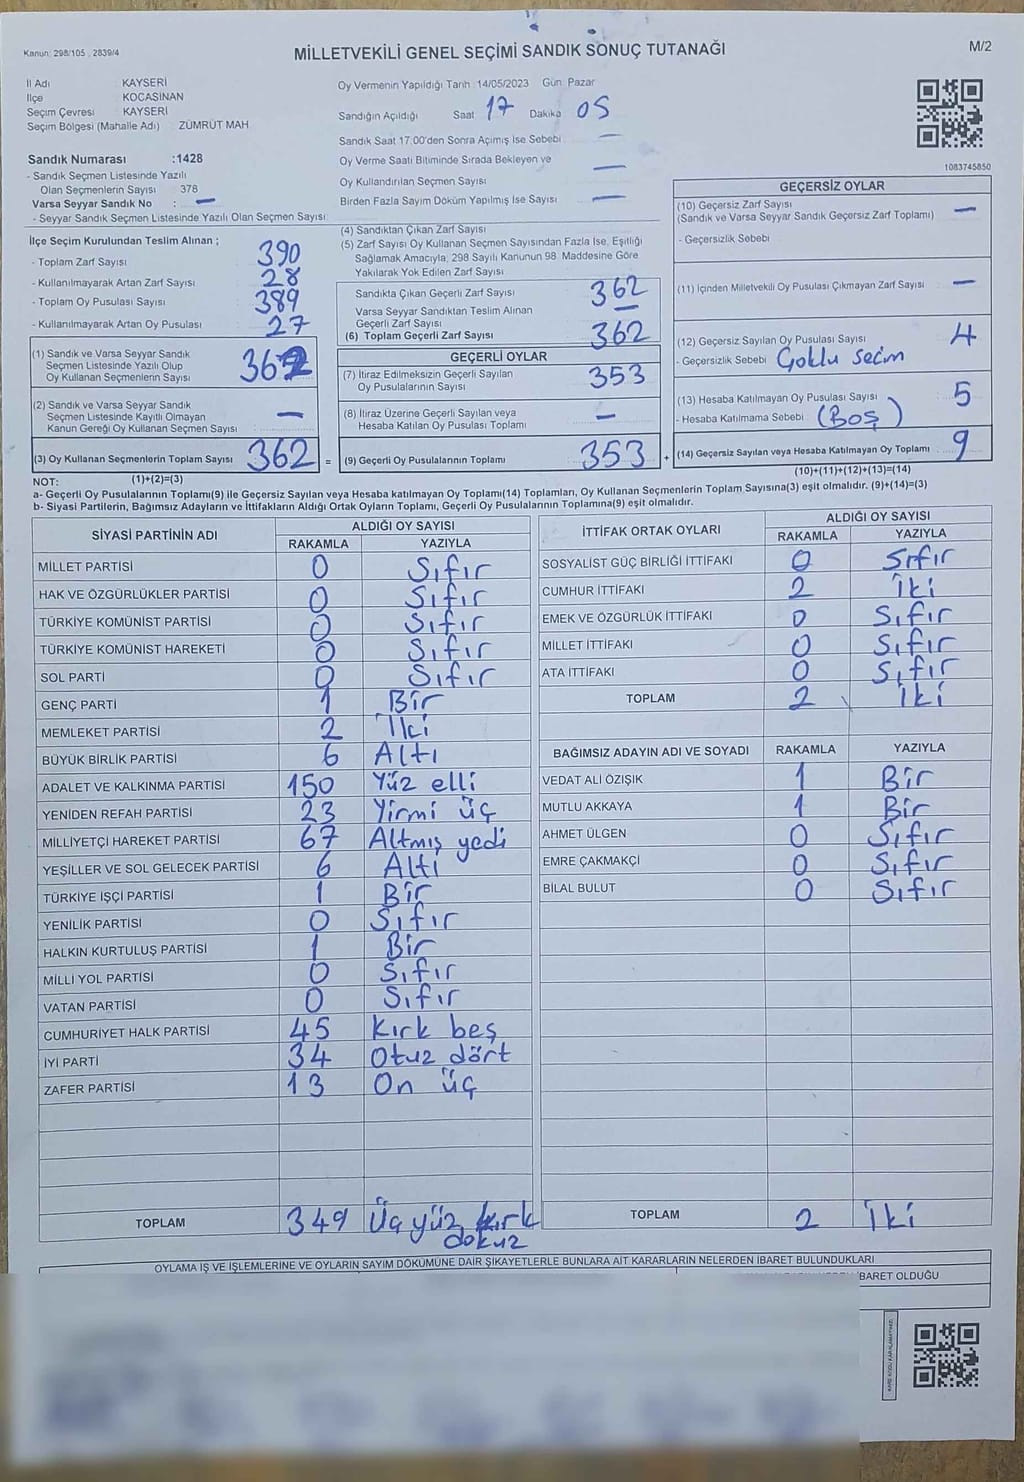 Kanun: 298/105 , 2839/4
MİLLETVEKİLİ GENEL SEÇİMİ SANDIK SONUÇ TUTANAĞI
M/2
İl Adı KAYSERİ
İlçe KOCASİNAN
Seçim Çevresi KAYSERİ
Seçim Bölgesi (Mahalle Adı) ZÜMRÜT MAH
Sandık Numarası :1428
- Sandık Seçmen Listesinde Yazılı
Olan Seçmenlerin Sayısı 378
Varsa Seyyar Sandık No : —
- Seyyar Sandık Seçmen Listesinde Yazılı Olan Seçmen Sayısı
Oy Vermenin Yapıldığı Tarih :14/05/2023 Gün Pazar
Sandığın Açıldığı Saat 17 Dakika 05
Sandık Saat 17.00'den Sonra Açımış İse Sebebi —
Oy Verme Saati Bitiminde Sırada Bekleyen ve
Oy Kullandırılan Seçmen Sayısı —
Birden Fazla Sayım Döküm Yapılmış İse Sayısı —
1083745850
İlçe Seçim Kurulundan Teslim Alınan ;
- Toplam Zarf Sayısı 390
- Kullanılmayarak Artan Zarf Sayısı 28
- Toplam Oy Pusulası Sayısı 389
- Kullanılmayarak Artan Oy Pusulası 27
(1) Sandık ve Varsa Seyyar Sandık
Seçmen Listesinde Yazılı Olup
Oy Kullanan Seçmenlerin Sayısı 362
(2) Sandık ve Varsa Seyyar Sandık
Seçmen Listesinde Kayıtlı Olmayan
Kanun Gereği Oy Kullanan Seçmen Sayısı —
(3) Oy Kullanan Seçmenlerin Toplam Sayısı 362 =
(1)+(2)=(3)
(4) Sandıktan Çıkan Zarf Sayısı
(5) Zarf Sayısı Oy Kullanan Seçmen Sayısından Fazla İse, Eşitliği
Sağlamak Amacıyla, 298 Sayılı Kanunun 98. Maddesine Göre
Yakılarak Yok Edilen Zarf Sayısı
Sandıkta Çıkan Geçerli Zarf Sayısı 362
Varsa Seyyar Sandıktan Teslim Alınan
Geçerli Zarf Sayısı —
(6) Toplam Geçerli Zarf Sayısı 362
GEÇERLİ OYLAR
(7) İtiraz Edilmeksizin Geçerli Sayılan
Oy Pusulalarının Sayısı 353
(8) İtiraz Üzerine Geçerli Sayılan veya
Hesaba Katılan Oy Pusulası Toplamı —
(9) Geçerli Oy Pusulalarının Toplamı 353 +
GEÇERSİZ OYLAR
(10) Geçersiz Zarf Sayısı
(Sandık ve Varsa Seyyar Sandık Geçersiz Zarf Toplamı) —
- Geçersizlik Sebebi
(11) İçinden Milletvekili Oy Pusulası Çıkmayan Zarf Sayısı —
(12) Geçersiz Sayılan Oy Pusulası Sayısı 4
- Geçersizlik Sebebi Çoklu Seçim
(13) Hesaba Katılmayan Oy Pusulası Sayısı 5
- Hesaba Katılmama Sebebi (Boş)
(14) Geçersiz Sayılan veya Hesaba Katılmayan Oy Toplamı 9
(10)+(11)+(12)+(13)=(14)
NOT:
a- Geçerli Oy Pusulalarının Toplamı(9) ile Geçersiz Sayılan veya Hesaba katılmayan Oy Toplamı(14) Toplamları, Oy Kullanan Seçmenlerin Toplam Sayısına(3) eşit olmalıdır. (9)+(14)=(3)
b- Siyasi Partilerin, Bağımsız Adayların ve İttifakların Aldığı Ortak Oyların Toplamı, Geçerli Oy Pusulalarının Toplamına(9) eşit olmalıdır.
SİYASİ PARTİNİN ADI ALDIĞI OY SAYISI
RAKAMLA YAZIYLA
MİLLET PARTİSİ 0 Sıfır
HAK VE ÖZGÜRLÜKLER PARTİSİ 0 Sıfır
TÜRKİYE KOMÜNİST PARTİSİ 0 Sıfır
TÜRKİYE KOMÜNİST HAREKETİ 0 Sıfır
SOL PARTİ 0 Sıfır
GENÇ PARTİ 1 Bir
MEMLEKET PARTİSİ 2 İki
BÜYÜK BİRLİK PARTİSİ 6 Altı
ADALET VE KALKINMA PARTİSİ 150 Yüz elli
YENİDEN REFAH PARTİSİ 23 Yirmi üç
MİLLİYETÇİ HAREKET PARTİSİ 67 Altmış yedi
YEŞİLLER VE SOL GELECEK PARTİSİ 6 Altı
TÜRKİYE İŞÇİ PARTİSİ 1 Bir
YENİLİK PARTİSİ 0 Sıfır
HALKIN KURTULUŞ PARTİSİ 1 Bir
MİLLİ YOL PARTİSİ 0 Sıfır
VATAN PARTİSİ 0 Sıfır
CUMHURİYET HALK PARTİSİ 45 Kırk beş
İYİ PARTİ 34 Otuz dört
ZAFER PARTİSİ 13 On üç
TOPLAM 349 Üç yüz kırk
dokuz
İTTİFAK ORTAK OYLARI ALDIĞI OY SAYISI
RAKAMLA YAZIYLA
SOSYALİST GÜÇ BİRLİĞİ İTTİFAKI 0 Sıfır
CUMHUR İTTİFAKI 2 İki
EMEK VE ÖZGÜRLÜK İTTİFAKI 0 Sıfır
MİLLET İTTİFAKI 0 Sıfır
ATA İTTİFAKI 0 Sıfır
TOPLAM 2 İki
BAĞIMSIZ ADAYIN ADI VE SOYADI RAKAMLA YAZIYLA
VEDAT ALİ ÖZIŞIK 1 Bir
MUTLU AKKAYA 1 Bir
AHMET ÜLGEN 0 Sıfır
EMRE ÇAKMAKÇİ 0 Sıfır
BİLAL BULUT 0 Sıfır
TOPLAM 2 İki
OYLAMA İŞ VE İŞLEMLERİNE VE OYLARIN SAYIM DÖKÜMÜNE DAİR ŞİKAYETLERLE BUNLARA AİT KARARLARIN NELERDEN İBARET BULUNDUKLARI
İBARET OLDUĞU